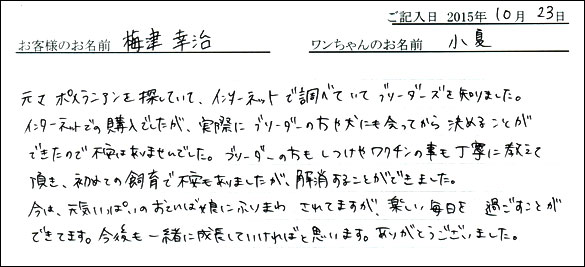 ご記入日 2015年 10月 23日
お客様のお名前 梅津 幸治 ワンちゃんのお名前 小夏
元々 ポメラニアンを探していて、インターネットで調べていて ブリーダーズを知りました。
インターネットでの購入でしたが、実際に ブリーダーの方や犬にも会ってから 決めることが
できたので不安はありませんでした。ブリーダーの方も しつけやワクチンの事も丁寧に教えて
頂き、初めての飼育で不安もありましたが、解消することができました。
今は、元気いっぱいのおてんば娘にふりまわされてますが、楽しい毎日を 過ごすことが
できてます。今後も一緒に成長していければと思います。ありがとうございました。